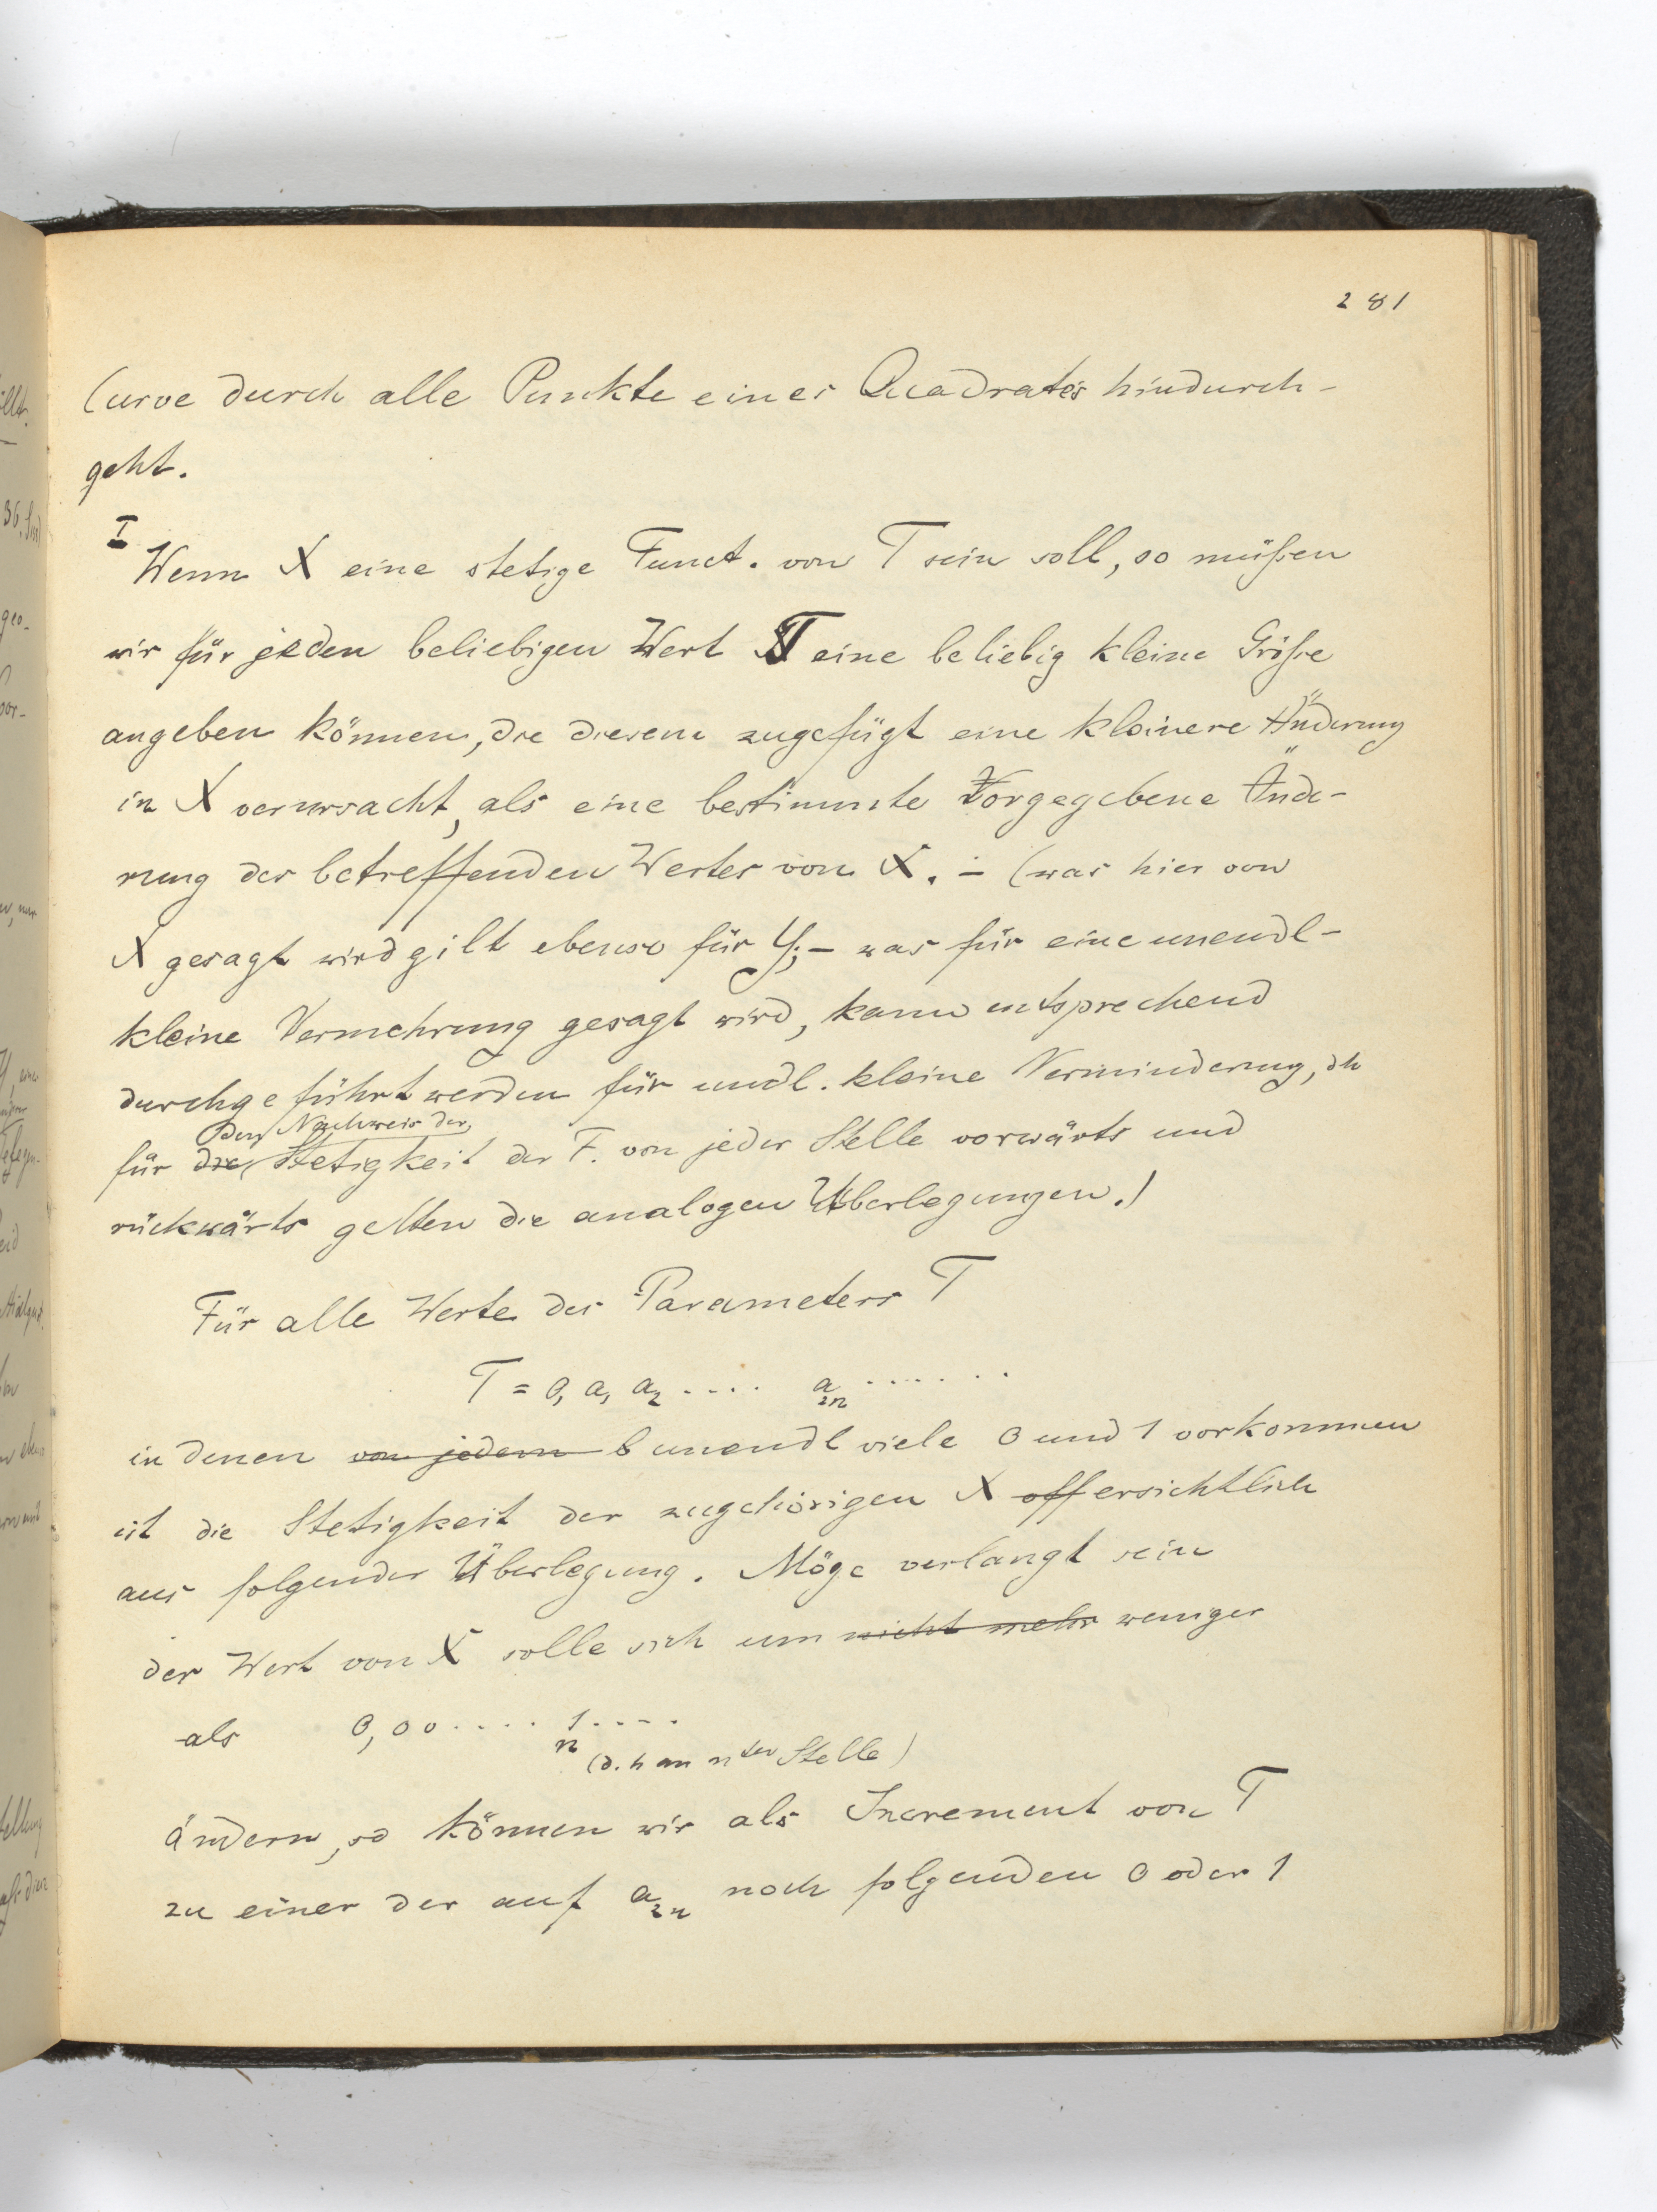 281
Curve durch alle Punkte eines Quadrates hindurch-
geht.
I
Wenn X eine stetige Funct. von T sein soll, so müßen
wir für jeden beliebigen Wert T eine beliebig kleine Größe
angeben können, die diesem zugefügt eine kleinere Änderung
in X verursacht, als eine bestimmte Vorgegebene Ände-
rung des betreffenden Wertes von X. – (was hier von
X gesagt wird gilt ebenso für Y; – was für eine unendl-
kleine Vermehrung gesagt wird, kann entsprechend
durchgeführt werden für undl. kleine Verminderung, dh
den Nachweis der
für die Stetigkeit der F. von jeder Stelle vorwärts und
rückwärts gelten die analogen Überlegungen.)
Für alle Werte des Parameters T
T = 0, a₁ a₂ .... a₂ₙ .......
in denen von jedem b unendl viele 0 und 1 vorkommen
ist die Stetigkeit der zugehörigen X off ersichtlich
aus folgender Überlegung. Möge verlangt sein
der Wert von X solle sich um nicht mehr weniger
als 0,00..... 1....
n (d. h an nter Stelle)
ändern, so können wir als Increment von T
zu einer der auf a₂ₙ noch folgenden 0 oder 1